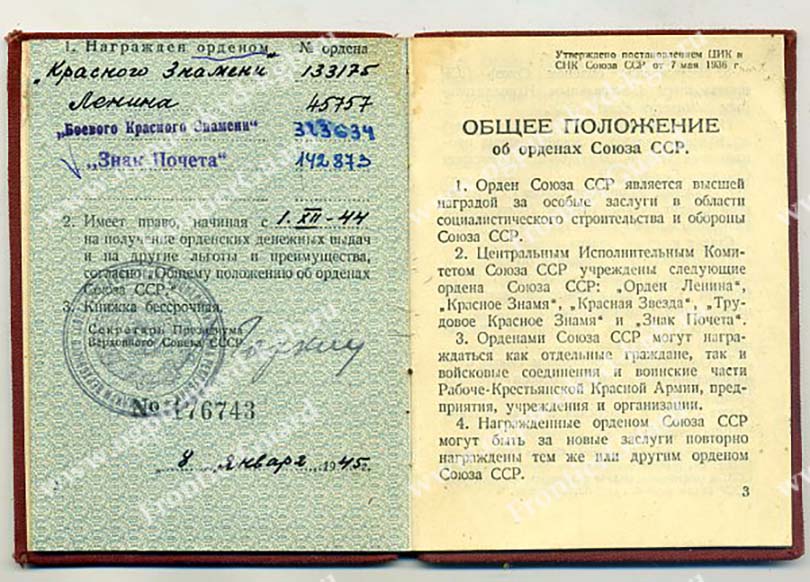 1. Награжден орденом № ордена
„Красного Знамени" 133175
Ленина 45757
„Боевого Красного Знамени" 323634
„Знак Почета" 142873
2. Имеет право, начиная с 1.XII-44
на получение орденских денежных выдач
и на другие льготы и преимущества,
согласно „Общему положению об орденах
Союза ССР."
3. Книжка бессрочная.
Секретарь Президиума
Верховного Совета СССР
№ 176743
„8" января 1945 г.
Утверждено постановлением ЦИК и
СНК Союза ССР от 7 мая 1936 г.
ОБЩЕЕ ПОЛОЖЕНИЕ
об орденах Союза ССР.
1. Орден Союза ССР является высшей
наградой за особые заслуги в области
социалистического строительства и обороны
Союза ССР.
2. Центральным Исполнительным Коми-
тетом Союза ССР учреждены следующие
ордена Союза ССР: „Орден Ленина",
„Красное Знамя", „Красная Звезда", „Тру-
довое Красное Знамя" и „Знак Почета".
3. Орденами Союза ССР могут награ-
ждаться как отдельные граждане, так и
войсковые соединения и воинские части
Рабоче-Крестьянской Красной Армии, пред-
приятия, учреждения и организации.
4. Награжденные орденом Союза ССР
могут быть за новые заслуги повторно
награждены тем же или другим орденом
Союза ССР.
3